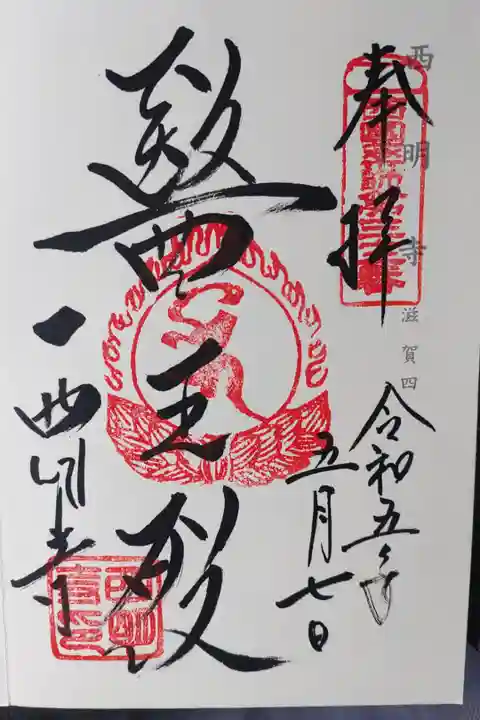 西明寺 滋賀四
奉拝
令和五年
五月七日
醫王殿
西明寺